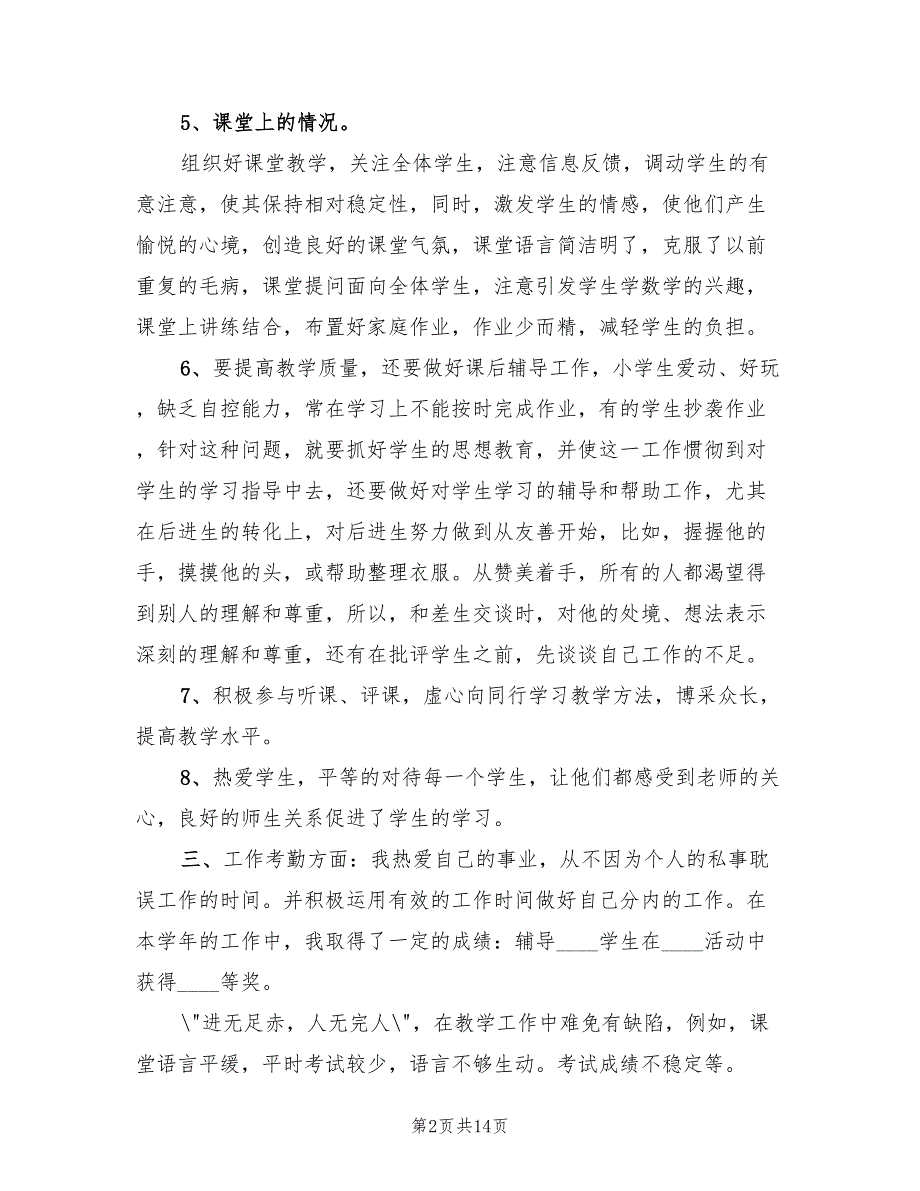 5、课堂上的情况。
组织好课堂教学，关注全体学生，注意信息反馈，调动学生的有
意注意，使其保持相对稳定性，同时，激发学生的情感，使他们产生
愉悦的心境，创造良好的课堂气氛，课堂语言简洁明了，克服了以前
重复的毛病，课堂提问面向全体学生，注意引发学生学数学的兴趣，
课堂上讲练结合，布置好家庭作业，作业少而精，减轻学生的负担。
6、要提高教学质量，还要做好课后辅导工作，小学生爱动、好玩
，缺乏自控能力，常在学习上不能按时完成作业，有的学生抄袭作业
，针对这种问题，就要抓好学生的思想教育，并使这一工作惯彻到对
学生的学习指导中去，还要做好对学生学习的辅导和帮助工作，尤其
在后进生的转化上，对后进生努力做到从友善开始，比如，握握他的
手，摸摸他的头，或帮助整理衣服。从赞美着手，所有的人都渴望得
到别人的理解和尊重，所以，和差生交谈时，对他的处境、想法表示
深刻的理解和尊重，还有在批评学生之前，先谈谈自己工作的不足。
7、积极参与听课、评课，虚心向同行学习教学方法，博采众长，
提高教学水平。
8、热爱学生，平等的对待每一个学生，让他们都感受到老师的关
心，良好的师生关系促进了学生的学习。
三、工作考勤方面：我热爱自己的事业，从不因为个人的私事耽
误工作的时间。并积极运用有效的工作时间做好自己分内的工作。在
本学年的工作中，我取得了一定的成绩：辅导____学生在____活动中
获得____等奖。
\"进无足赤，人无完人\"，在教学工作中难免有缺陷，例如，课
堂语言平缓，平时考试较少，语言不够生动。考试成绩不稳定等。
第2页共14页